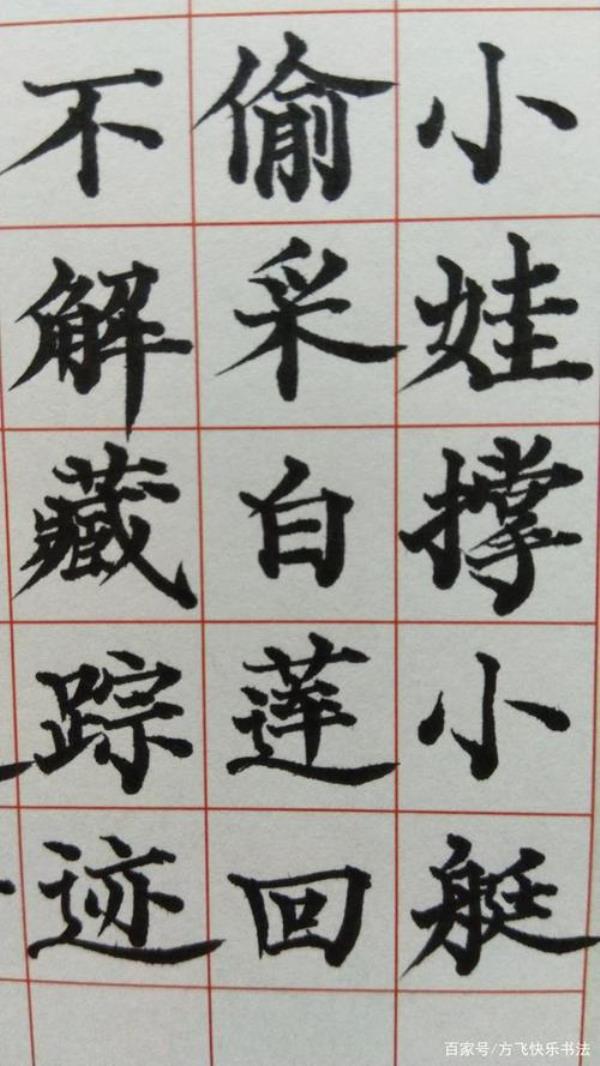 小娃撑小艇
偷采白莲回
不解藏踪迹
百家号/方飞快乐书法